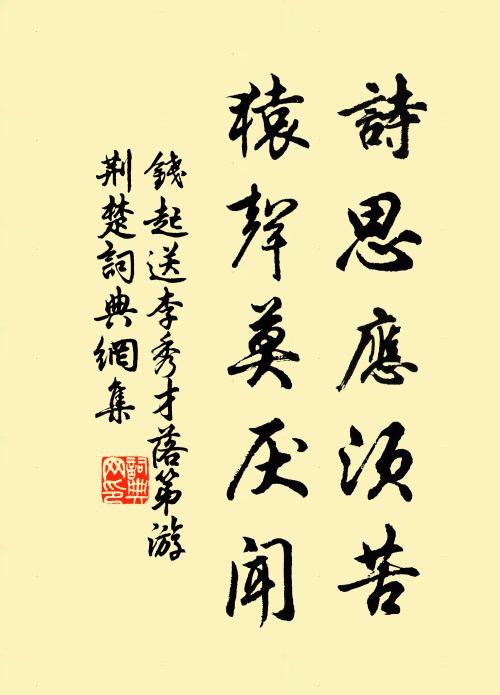 詩思應須苦
猿聲莫厌闻
錢起送李秀才落第游
荆楚詞典網集
詞典
网印